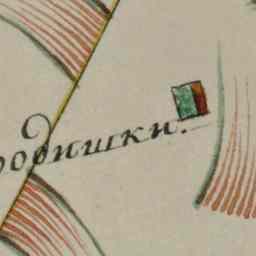 родишки.